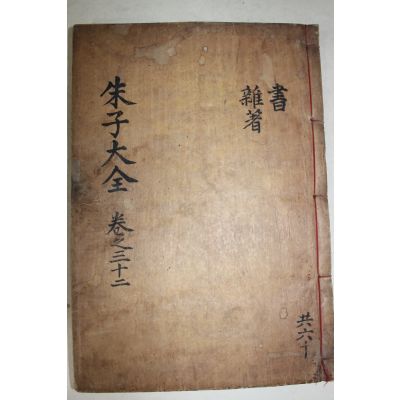 書
雜著
朱子大全 卷之三十二
共六十